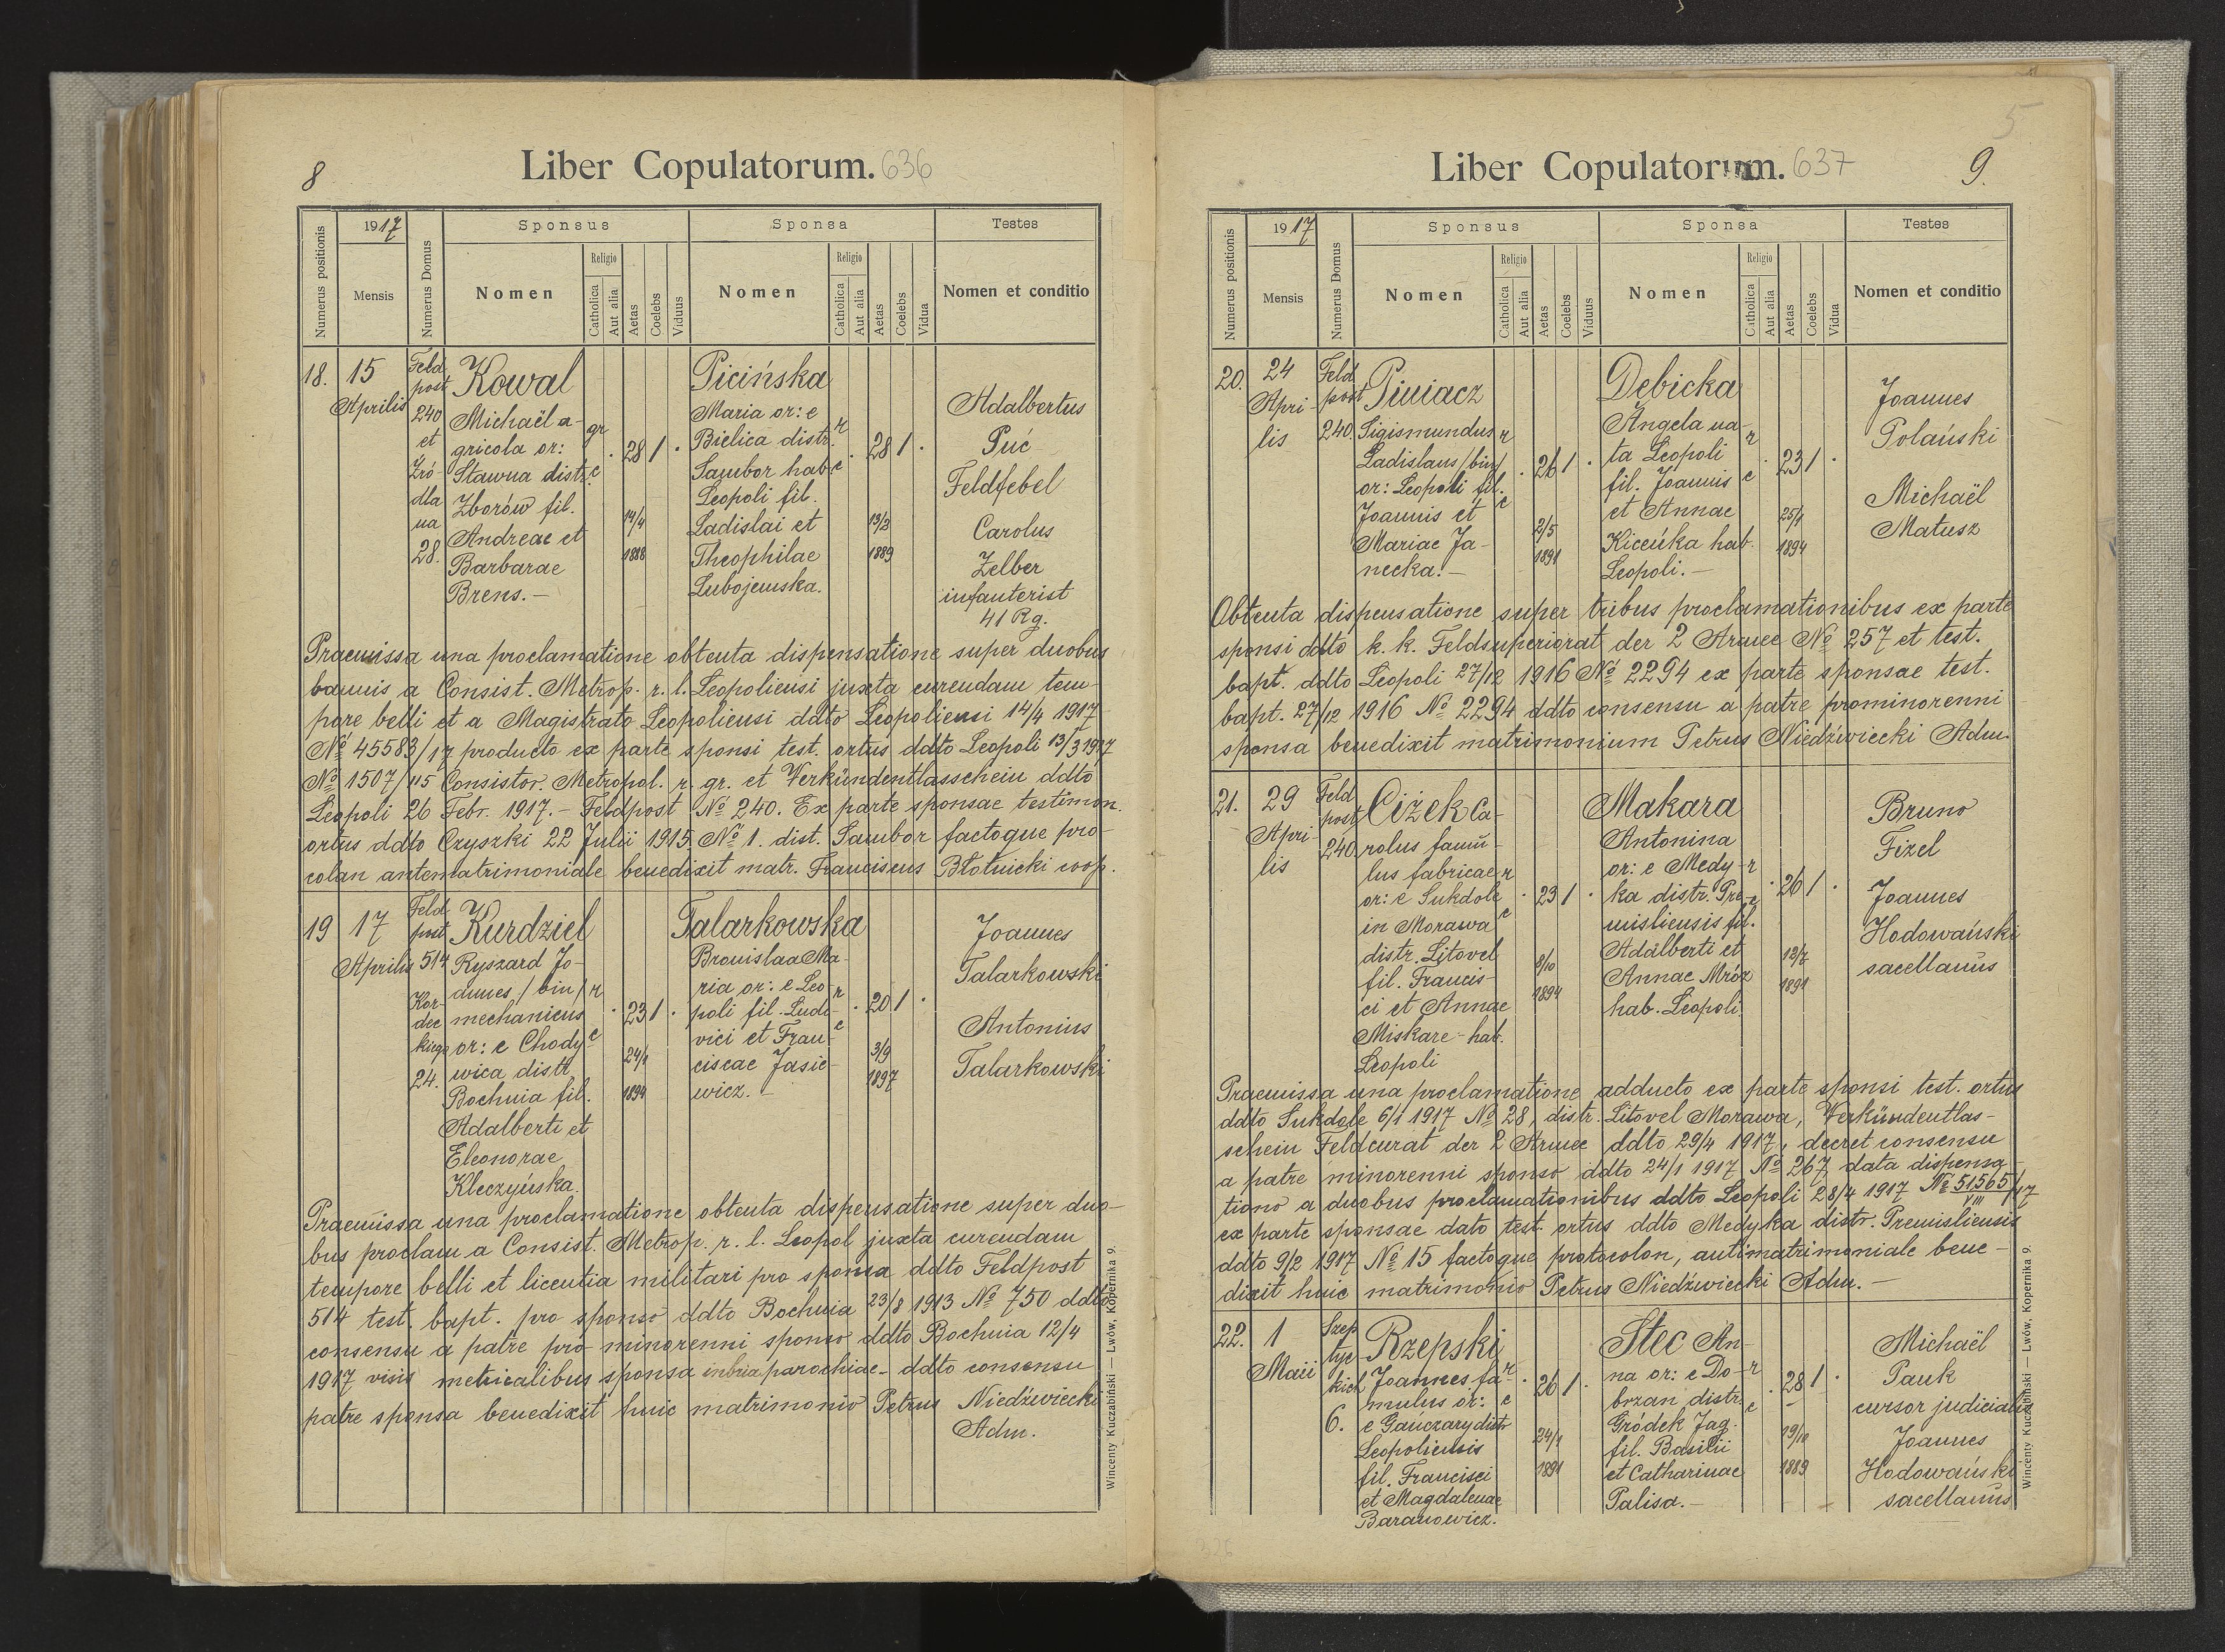 8
Liber Copulatorum. 636
Numerus positionis
1917
Mensis
Numerus Domus
Sponsus
Nomen
Religio
Catholica
Aut alia
Aetas
Coelebs
Viduus
Sponsa
Nomen
Religio
Catholica
Aut alia
Aetas
Coelebs
Vidua
Testes
Nomen et conditio
18.
15
Aprilis
Feld
post
240
et
Źró-
dla
na
28.
Kowal
Michaël a-
gricola or:
Stawna distr.
Zborów fil.
Andreae et
Barbarae
Brens.—
gr
c
28 1
14/4
1888
Picińska
Maria or: e
Bielica distr.
Sambor hab.
Leopoli fil.
Ladislai et
Theophilae
Lubojemska.
r
c
28 1
13/2
1889
Adalbertus
Puć
Feldfebel
Carolus
Zelber
infanterist
41 Rg.
Praemissa una proclamatione obtenta dispensatione super duobus
bannis a Consist. Metrop. r. l. Leopoliensi juxta curendam tem-
pore belli et a Magistrato Leopoliensi ddto Leopoliensi 14/4 1917
No 45583/17 producto ex parte sponsi test. ortus ddto Leopoli 13/3 1917
No 1507/115 Consistor. Metropol. r. gr. et Verkündentlasschein ddto
Leopoli 26 Febr. 1917.— Feldpost No 240. Ex parte sponsae testimon.
ortus ddto Czyszki 22 Julii 1915. No 1. dist. Sambor factoque pro-
colan antematrimoniale benedixit matr. Franciscus Błotnicki coop.
19
17
Aprilis
Feld
post
514
Kor-
dec
kiego
24.
Kurdziel
Ryszard Jo-
annes / bin /
mechanicus
or: e Chody-
wica distr.
Bochnia fil.
Adalberti et
Eleonorae
Kleczyńska.
r
c
23 1
24/1
1894
Talarkowska
Bronislaa Ma-
ria or: e Leo
poli fil. Ludo-
vici et Fran-
ciscae Jasie-
wicz.—
r
c
20 1
3/9
1897
Joannes
Talarkowski
Antonius
Talarkowski
Praemissa una proclamatione obtenta dispensatione super duo-
bus proclam a Consist. Metrop. r. l. Leopol juxta curendam
tempore belli et licentia militari pro sponsa ddto Feldpost
514 test. bapt. pro sponso ddto Bochnia 23/8 1913 No 750 ddto
consensu a patre pro minorenni sponso ddto Bochnia 12/4
1917 visis metricalibus sponsa parochiae ddto consensu
patre sponsa benedixit huic matrimonio Petrus Niedźwiecki
Adm.
Wincenty Kuczabiński — Lwów, Kopernika 9.
5
9.
Liber Copulatorum. 637
Numerus positionis
1917
Mensis
Numerus Domus
Sponsus
Nomen
Religio
Catholica
Aut alia
Aetas
Coelebs
Viduus
Sponsa
Nomen
Religio
Catholica
Aut alia
Aetas
Coelebs
Vidua
Testes
Nomen et conditio
20.
24
Apri-
lis
Feld
post
240
Piniacz
Sigismundus
Ladislaus / bin /
or: Leopoli fil.
Joannis et
Mariae Ja-
necka.—
r
c
26 1
2/5
1891
Debicka
Angela na-
ta Leopoli
fil. Joannis
et Annae
Kiceńka hab.
Leopoli.—
r
c
23 1
25/1
1894
Joannes
Polański
Michaël
Matusz
Obtenta dispensatione super tribus proclamationibus ex parte
sponsi ddto k. k. Feldsuperiorat der 2 Armee No 257 et test.
bapt. ddto Leopoli 27/12 1916 No 2294 ex parte sponsae test.
bapt. 27/12 1916 No 2294 ddto consensu a patre prominorenni
sponsa benedixit matrimonium Petrus Niedźwiecki Adm.
21.
29
Apri-
lis
Feld
post
240
Ciżek Ca-
rolus famu-
lus fabricae
or: e Sukdole
in Morawa
distr. Litovel
fil. Francis-
ci et Annae
Miskare - hab.
Leopoli
r
c
23 1
8/10
1894
Makara
Antonina
or: e Medy-
ka distr. Pre-
misliensis fil.
Adalberti et
Annae Mróz
hab. Leopoli.
r
c
26 1
12/7
1891
Bruno
Fizel
Joannes
Hodowański
sacellanus
Praemissa una proclamatione adducto ex parte sponsi test. ortus
ddto Sukdole 6/1 1917 No 28, distr. Litovel Morawa, Verkündentlas-
schein Feldcurat der 2 Armee ddto 29/4 1917, decret consensu
a patre minorenni sponso ddto 24/1 1917 No 267 data dispensa-
tiono a duobus proclamationibus ddto Leopoli 28/4 1917 No 51565/17
VIII
ex parte sponsae dato test. ortus ddto Medyka distr. Premisliensis
ddto 9/2 1917 No 15 factoque protocolon, antimatrimoniale bene-
dixit huic matrimonio Petrus Niedźwiecki Adm.—
22.
1
Maii
Szep
tyc-
kich
6.
Rzepski
Joannes fa-
mulus or:
e Ganczary distr
Leopoliensis
fil. Francisci
et Magdalenae
Baranowicz.
r
c
26 1
24/1
1891
Stec An-
na or: e Do-
brzan distr.
Gródek Jag.
fil. Basilii
et Catharinae
Palisa.—
r
c
28 1
19/10
1889
Michaël
Pauk
cursor judicialis
Joannes
Hodowański
sacellanus
Wincenty Kuczabiński — Lwów, Kopernika 9.